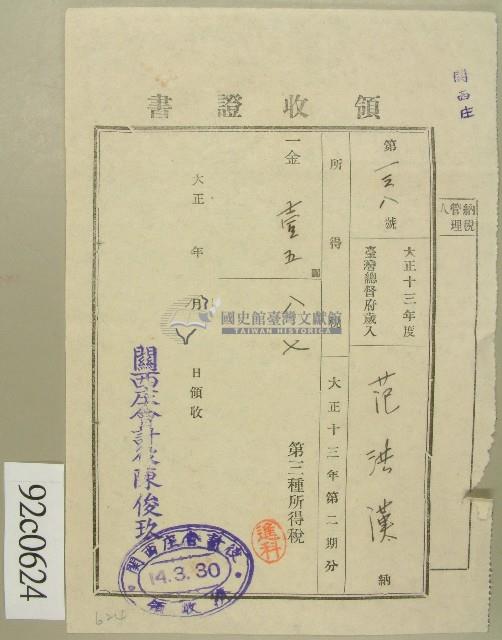 關西庄
領收證書
納稅管理人
第 一三八 號
大正十三年度
臺灣總督府歲入
范洪漢 納
所得稅 大正十三年第二期分
第三種所得稅
一金 壹五圓八七
大正 年 月 八 日領收
關西庄會計役陳俊玖
關西庄會計役
14.3.30
領收
國史館臺灣文獻館
TAIWAN HISTORICA
92c0624
624